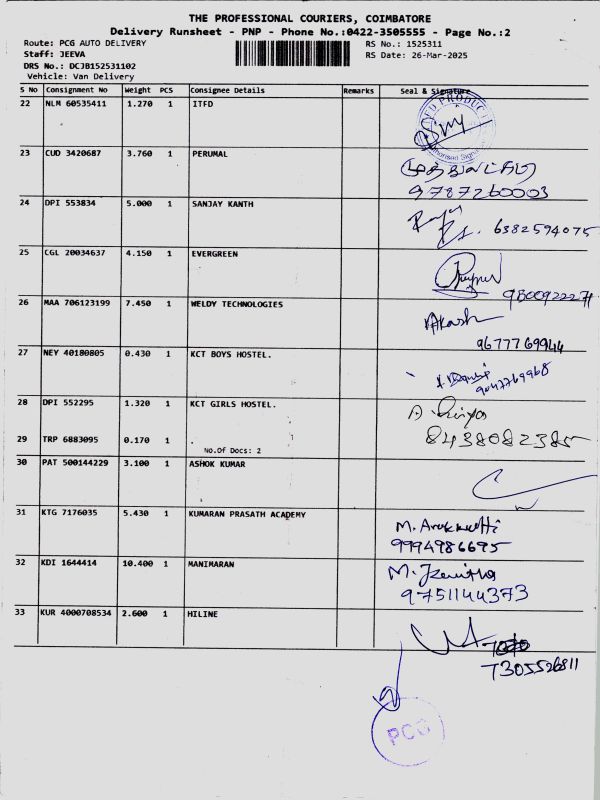 THE PROFESSIONAL COURIERS, COIMBATORE
Delivery Runsheet - PNP - Phone No.:0422-3505555 - Page No.:2
Route: PCG AUTO DELIVERY RS No.: 1525311
Staff: JEEVA RS Date: 26-Mar-2025
DRS No.: DCJB152531102
Vehicle: Van Delivery
S No Consignment No Weight PCS Consignee Details Remarks Seal & Signature
22 NLM 60535411 1.270 1 ITFD
23 CUD 3420687 3.760 1 PERUMAL
9787260003
24 DPI 553834 5.000 1 SANJAY KANTH
6382594075
25 CGL 20034637 4.150 1 EVERGREEN
26 MAA 706123199 7.450 1 WELDY TECHNOLOGIES
Akash
9677769944
27 NEY 40180805 0.430 1 KCT BOYS HOSTEL.
9047769968
28 DPI 552295 1.320 1 KCT GIRLS HOSTEL.
8438082385
29 TRP 6883095 0.170 1
No.Of Docs: 2
30 PAT 500144229 3.100 1 ASHOK KUMAR
31 KTG 7176035 5.430 1 KUMARAN PRASATH ACADEMY
9994986695
32 KDI 1644414 10.400 1 MANIMARAN
9751144373
33 KUR 4000708534 2.600 1 HILINE
7305526811
PCG